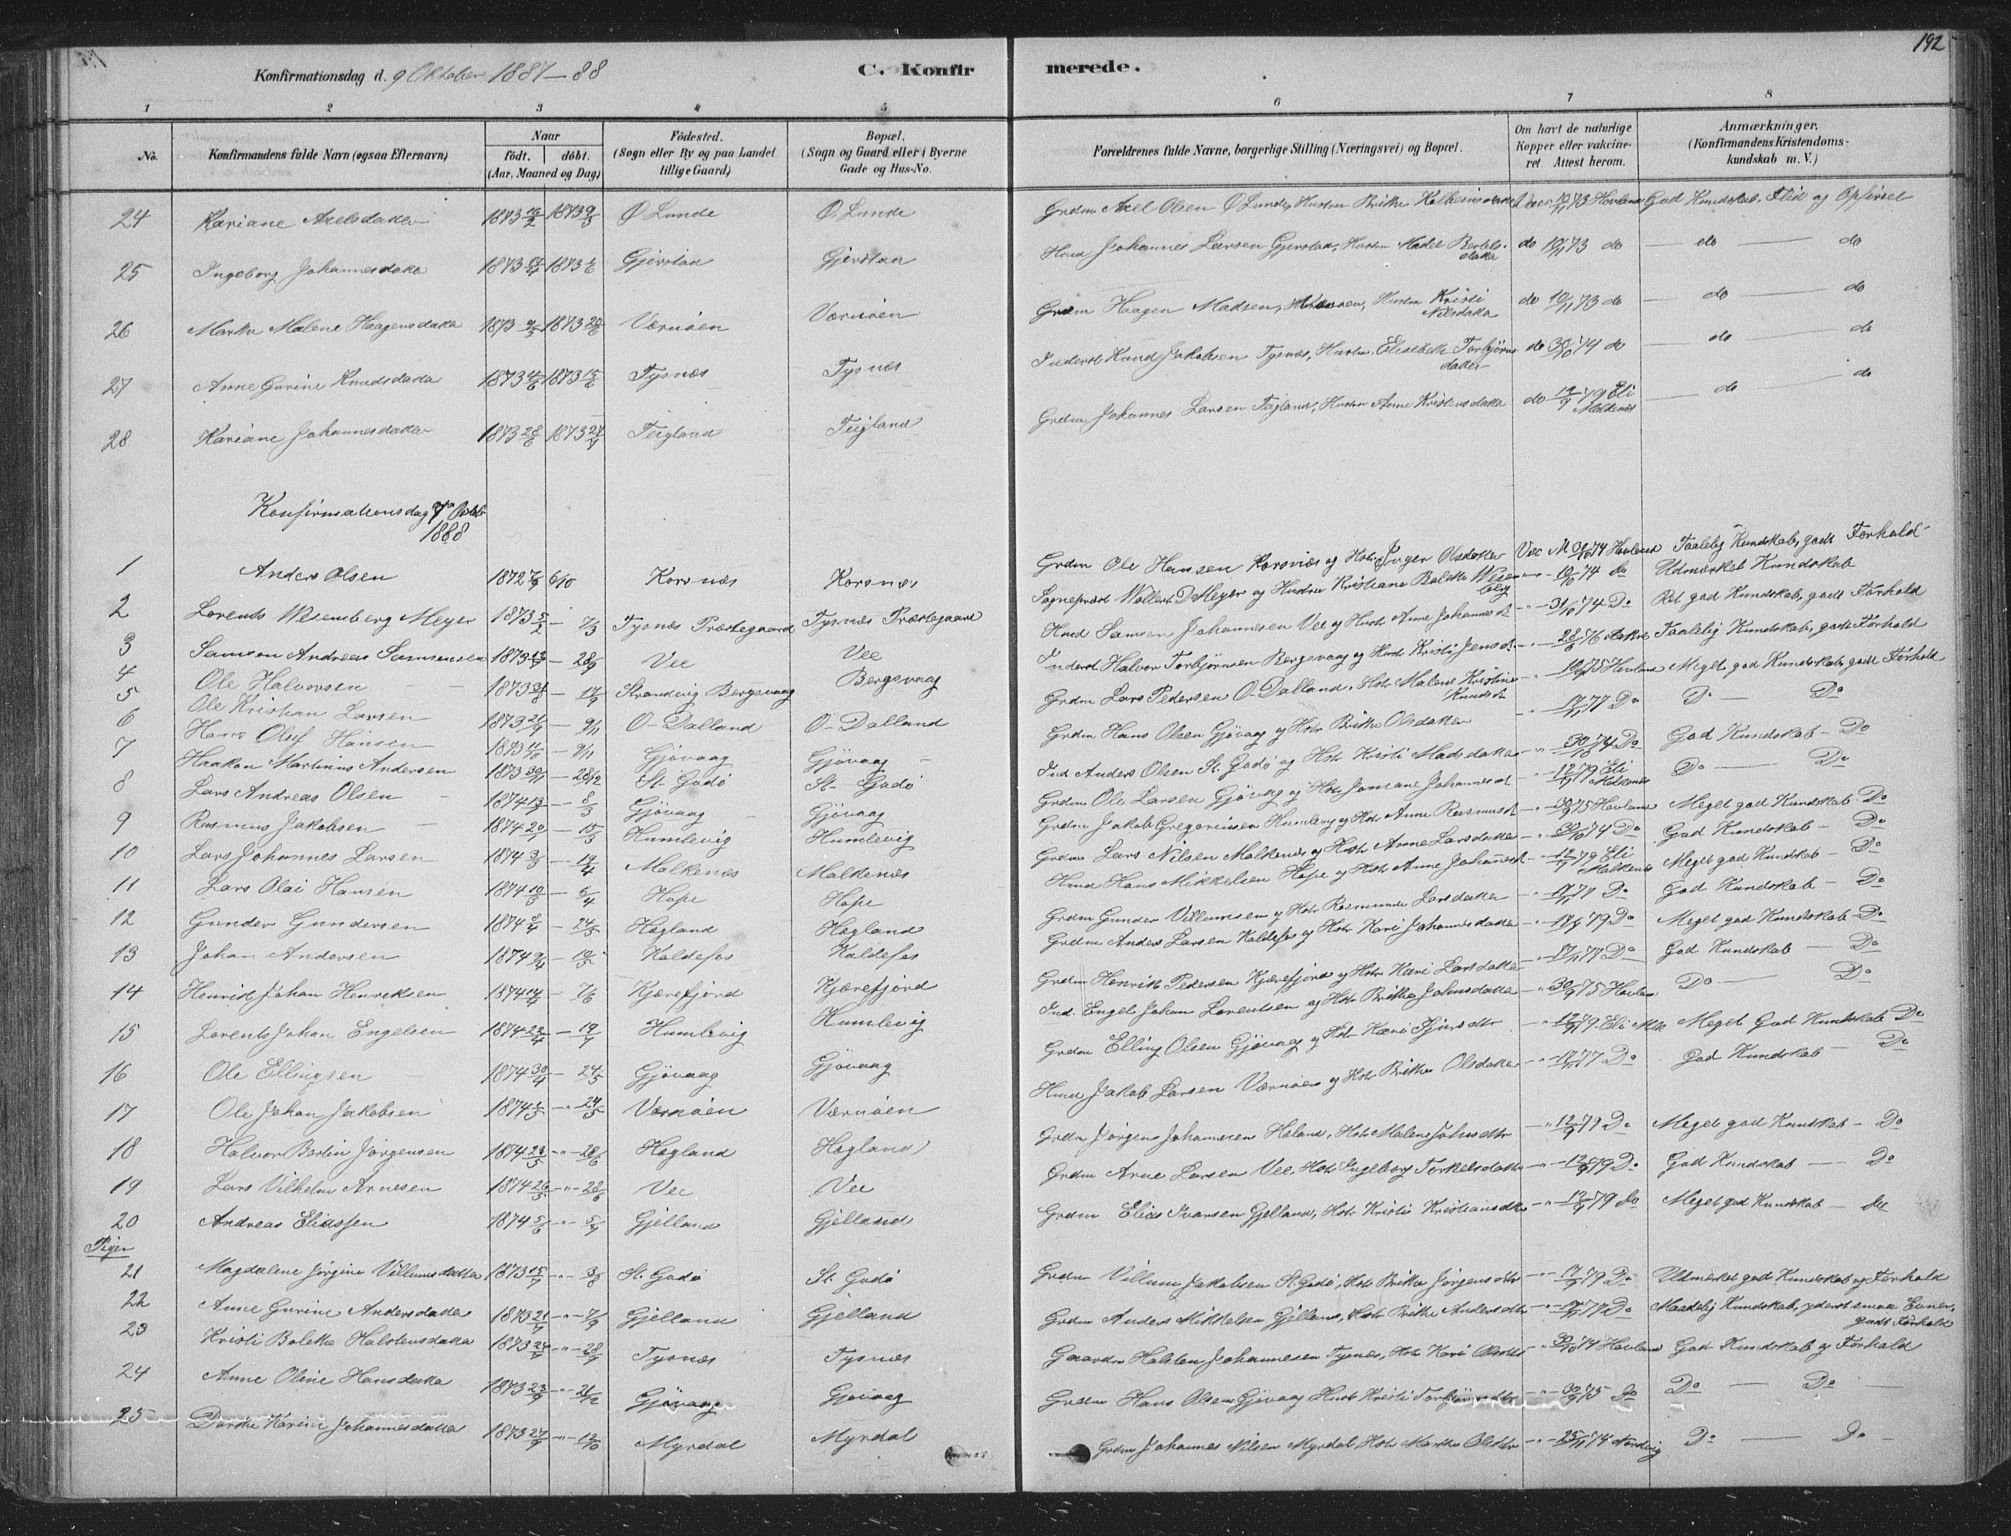 192
Konfirmationsdag d. 9 Oktober 1887-88
C. Konfirmerede.
1 2 3 4 5 6 7 8
No.
Konfirmandens fulde Navn (ogsaa Efternavn)
Naar
født. døbt.
(Aar, Maaned og Dag)
Fødested.
(Sogn eller By og paa Landet
tillige Gaard)
Bopæl.
(Sogn og Gaard eller i Byerne
Gade og Hus-No.
Forældrenes fulde Navne, borgerlige Stilling (Næringsvei) og Bopæl.
Om havt de naturlige
Kopper eller vakcine-
ret Attest herom.
Anmærkninger.
(Konfirmandens Kristendoms-
kundskab m. V.)
24 Kariane Axelsdatter 1873 1873 9/3 Ø Lunde Ø Lunde Grdm Axel Olsen Ø Lunde, Hustru Brithe 10/11 73 Havland God Kundskab, Flid og Opførsel
25 Ingeborg Johannesdatter 1873 1873 Gjerstad Gjerstad Hmd Johannes Larsen Gjerstad, Hustru Madel Bertels-
datter do 10/11 73 do do do
26 Marthe Malene Haagensdatter 1873 1873 Værnøen Værnøen Grdm Haagen Madsen, Værnøen, Hustru Kristi
Nilsdatter do 10/11 73 do do do
27 Anne Gurine Knudsdatter 1873 4/6 1873 15/6 Tysnæs Tysnæs Inderst Knud Jakobsen Tysnæs, Hustru Elisabeth Torbjørns-
datter do 30/10 74 do do do
28 Kariane Johannesdatter 1873 28/6 1873 27/7 Teigland Teigland Grdm Johannes Larsen Teigland, Hustru Anne Kristensdatter do 12/9 79 Eli
Malkenæs do do
Konfirmationsdag 7 Oktbr
1888
1 Anders Olsen 1872 6/10 Korsnæs Korsnæs Grdm Ole Hansen Korsnæs og Hstr Inger Olsdatter Vac 74 Havland Taalelig Kundskab, godt Forhold
2 Lorents Wesenberg Meyer 1873 5/2 - 7/3 Tysnæs Præstegaard Tysnæs Præstegaard Sogneprest Wollert D Meyer og Hustru Kristiane Bolette Wesen-
berg 74 do Udmærket Kundskab
3 Samson Andreas Samsonsen 1873 - 28/9 Vee Vee Hmd Samson Johannesen Vee og Hustr Anne Johannesd - 31/10 74 Do Ret god Kundskab, godt Forhold
4 Ole Halvorsen 1873 - 14/9 Strandvig Bergsvaag Bergsvaag Inderst Halvor Torbjørnsen Bergsvaag og Hustr Kristi Jensd 76 Taalelig Kundskab, godt Forhold
5 Ole Kristian Larsen 1873 21/9 - 9/11 O-Dalland O-Dalland Grdm Lars Pedersen O-Dalland, Hstr Malene Kristine
Knudsd 75 Havland Meget god Kundskab, godt Forhold
6 Hans Oluf Hansen 1873 - 9/11 Gjøvaag Gjøvaag Grdm Hans Olsen Gjøvaag og Hstr Brithe Olsdatter 77 Do Do Do
7 Haakon Martinus Andersen 1873 30/11 - 28/12 St. Godø St. Godø Ind Anders Olsen St. Godø og Hstr Kristi Madsdatter - 30/10 74 Do God Kundskab - Do
8 Lars Andreas Olsen 1874 - 8/3 Gjøvaag Gjøvaag Grdm Ole Larsen Gjøvaag og Hstr Johannesd - 12/9 79 Eli
Malkenæs Do Do
9 Rasmus Jakobsen 1874 - 15/3 Humlevig Humlevig Grdm Jakob Gregoriusen Humlevig og Hstr Anne Rasmusd - 30/9 75 Havland Meget god Kundskab - Do
10 Lars Johannes Larsen 1874 3/3 - Malkenæs Malkenæs Grdm Lars Nilsen Malkenæs og Hstr Anne Larsdatter - 30/10 74 Do God Kundskab - Do
11 Lars Olai Hansen 1874 10/3 - 6/4 Hope Hope Hmd Hans Mikkelsen Hope og Hstr Anne Johannesd - 12/9 79 Eli
Malkenæs Meget god Kundskab - Do
12 Gunder Gundersen 1874 - 24/5 Hogland Hogland Grdm Gunder Villumsen og Hstr Rasmine Larsdatter - 77 Do God Kundskab - Do
13 Johan Andersen 1874 - Kaldefos Kaldefos Grdm Anders Larsen Kaldefos og Hstr Kari Johannesdatter - 79 Do Meget god Kundskab - Do
14 Henrik Johan Henriksen 1874 - 7/6 Kjærefjord Kjærefjord Grdm Henrik Pedersen Kjærefjord og Hstr Kari Larsdatter - 77 Do God Kundskab - Do
15 Lorents Johan Engelsen 1874 - Humlevig Humlevig Ind. Engel Johan Lorentsen og Hstr Brithe Johnsdatter - 30/9 75 Havland Do Do
16 Ole Ellingsen 1874 30/4 - 24/5 Gjøvaag Gjøvaag Grdm Elling Olsen Gjøvaag og Hstr Kari - 12/9 79 Eli Meget God Kundskab Do
17 Ole Johan Jakobsen 1874 - 24/5 Værnøen Værnøen Hmd Jakob Larsen Værnøen og Hstr Brithe Olsdatter - 77 Do God Kundskab - Do
18 Halvor Bertin Jørgensen 1874 23/5 - 28/6 Hogland Hogland Grdm Jørgen Johannesen Holand, Hstr Malene Johnsdtr - 12/9 79 Do Meget god Kundskab - Do
19 Lars Vilhelm Arnesen 1874 26/5 - 28/6 Vee Vee Grdm Arne Larsen Vee, Hstr Ingeborg Torkelsdatter - 12/9 79 Do God Kundskab - Do
20 Andreas Eliassen 1874 5/6 - 5/7 Gjelland Gjelland Grdm Elias Ivarsen Gjelland, Hstr Kristi Kristiansdtr - 12/9 79 do Meget god Kundskab - do
Piger
21 Magdalene Jørgine Villumsdatter 1873 15/7 - 3/8 St. Godø St. Godø Grdm Villum Jakobsen St. Godø, Hstr Brithe Jørgensdtr - 79 Do Udmerket god Kundskab og Forhold
22 Anne Gurine Andersdatter 1873 21/7 - 7/9 Gjelland Gjelland Grdm Anders Mikkelsen Gjelland, Hstr Brithe Andersdtr - 77 Do Maadelig Kundskab, yderst smaa Evner,
godt Forhold
23 Kristi Bolette Halstensdatter 1873 - 28/9 Tysnæs Tysnæs Gaardm Halsten Johannesen Tysnæs, Hstr Kari Olsdtr 30/10 74 Havland God Kundskab og Forhold
24 Anne Oline Hansdatter 1873 23/9 - Gjøvaag Gjøvaag Grdm Hans Olsen Gjøvaag Hustr Kristi Torbjørnsdtr - 30/9 75 Do Do Do
25 Dorthe Karine Johannesdatter 1873 27/9 - 12/10 Myrdal Myrdal Grdm Johannes Nilsen Myrdal Hstr Marthe Olsdtr - 25/11 74 Nordvig Do Do